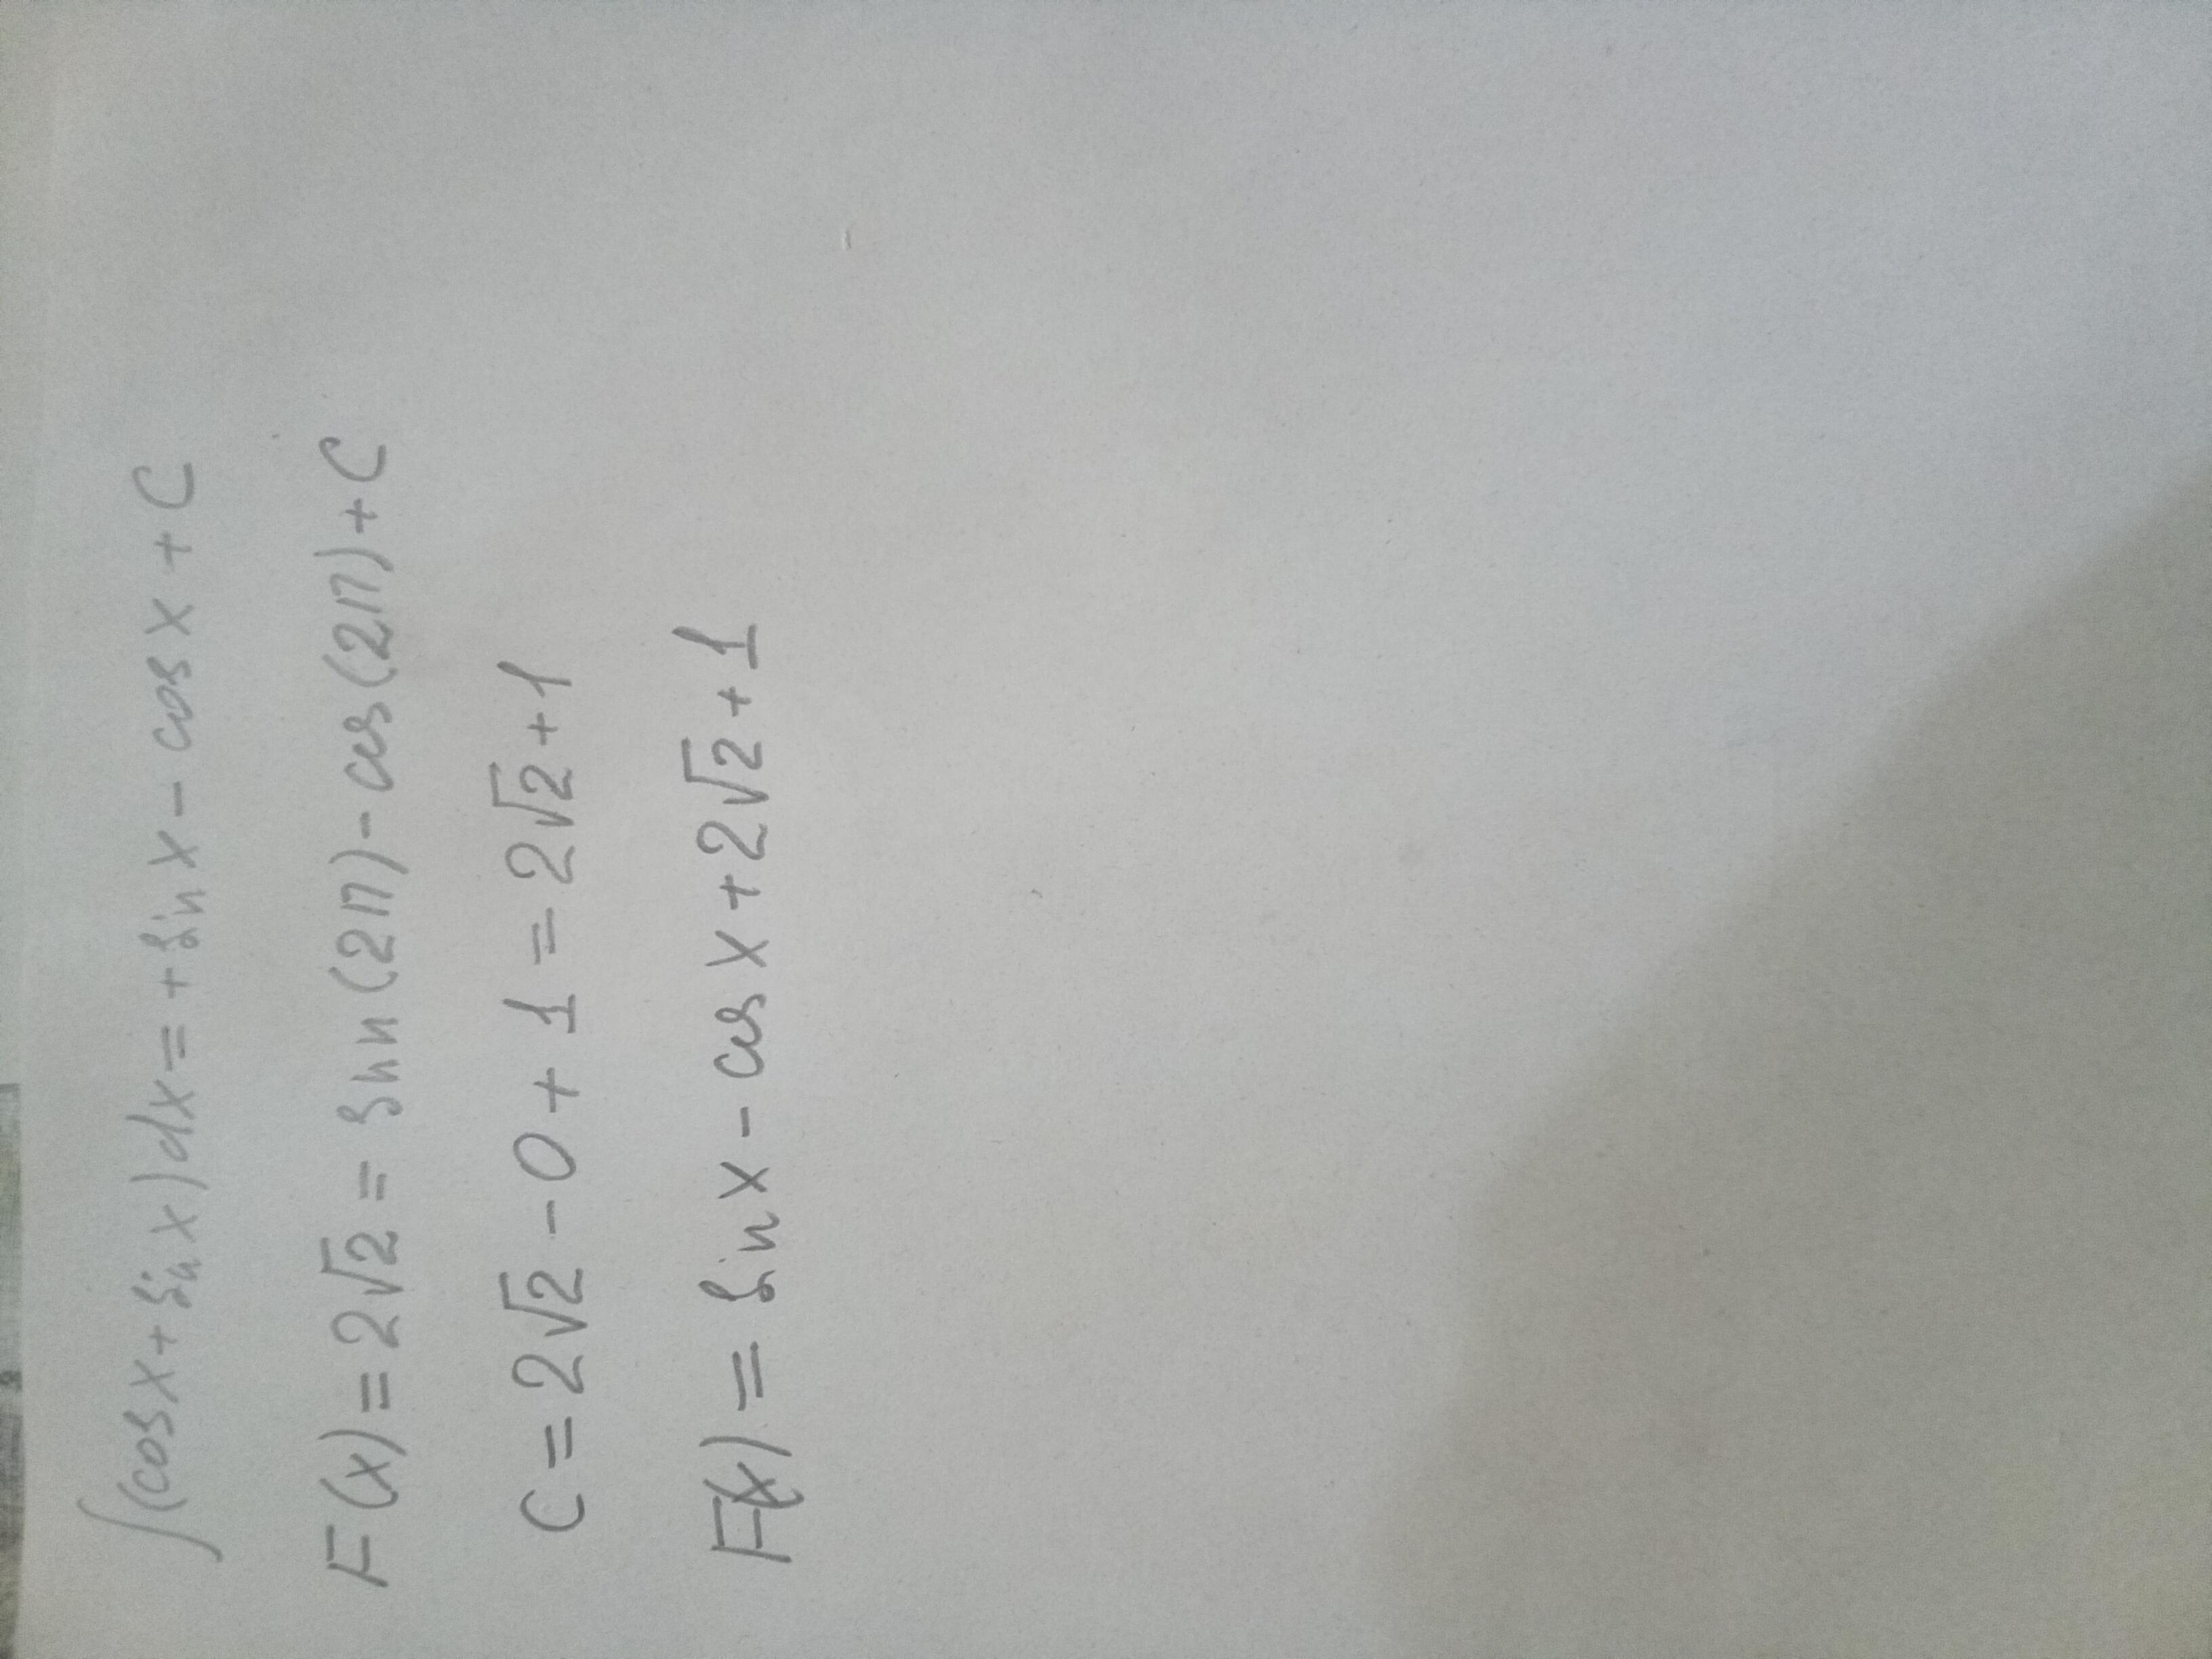 ∫(cosx+sinx)dx=+sinx-cosx+C
F(x)=2√2=sin(2π)-cos(2π)+C
C=2√2-0+1=2√2+1
F(x)=sinx-cosx+2√2+1